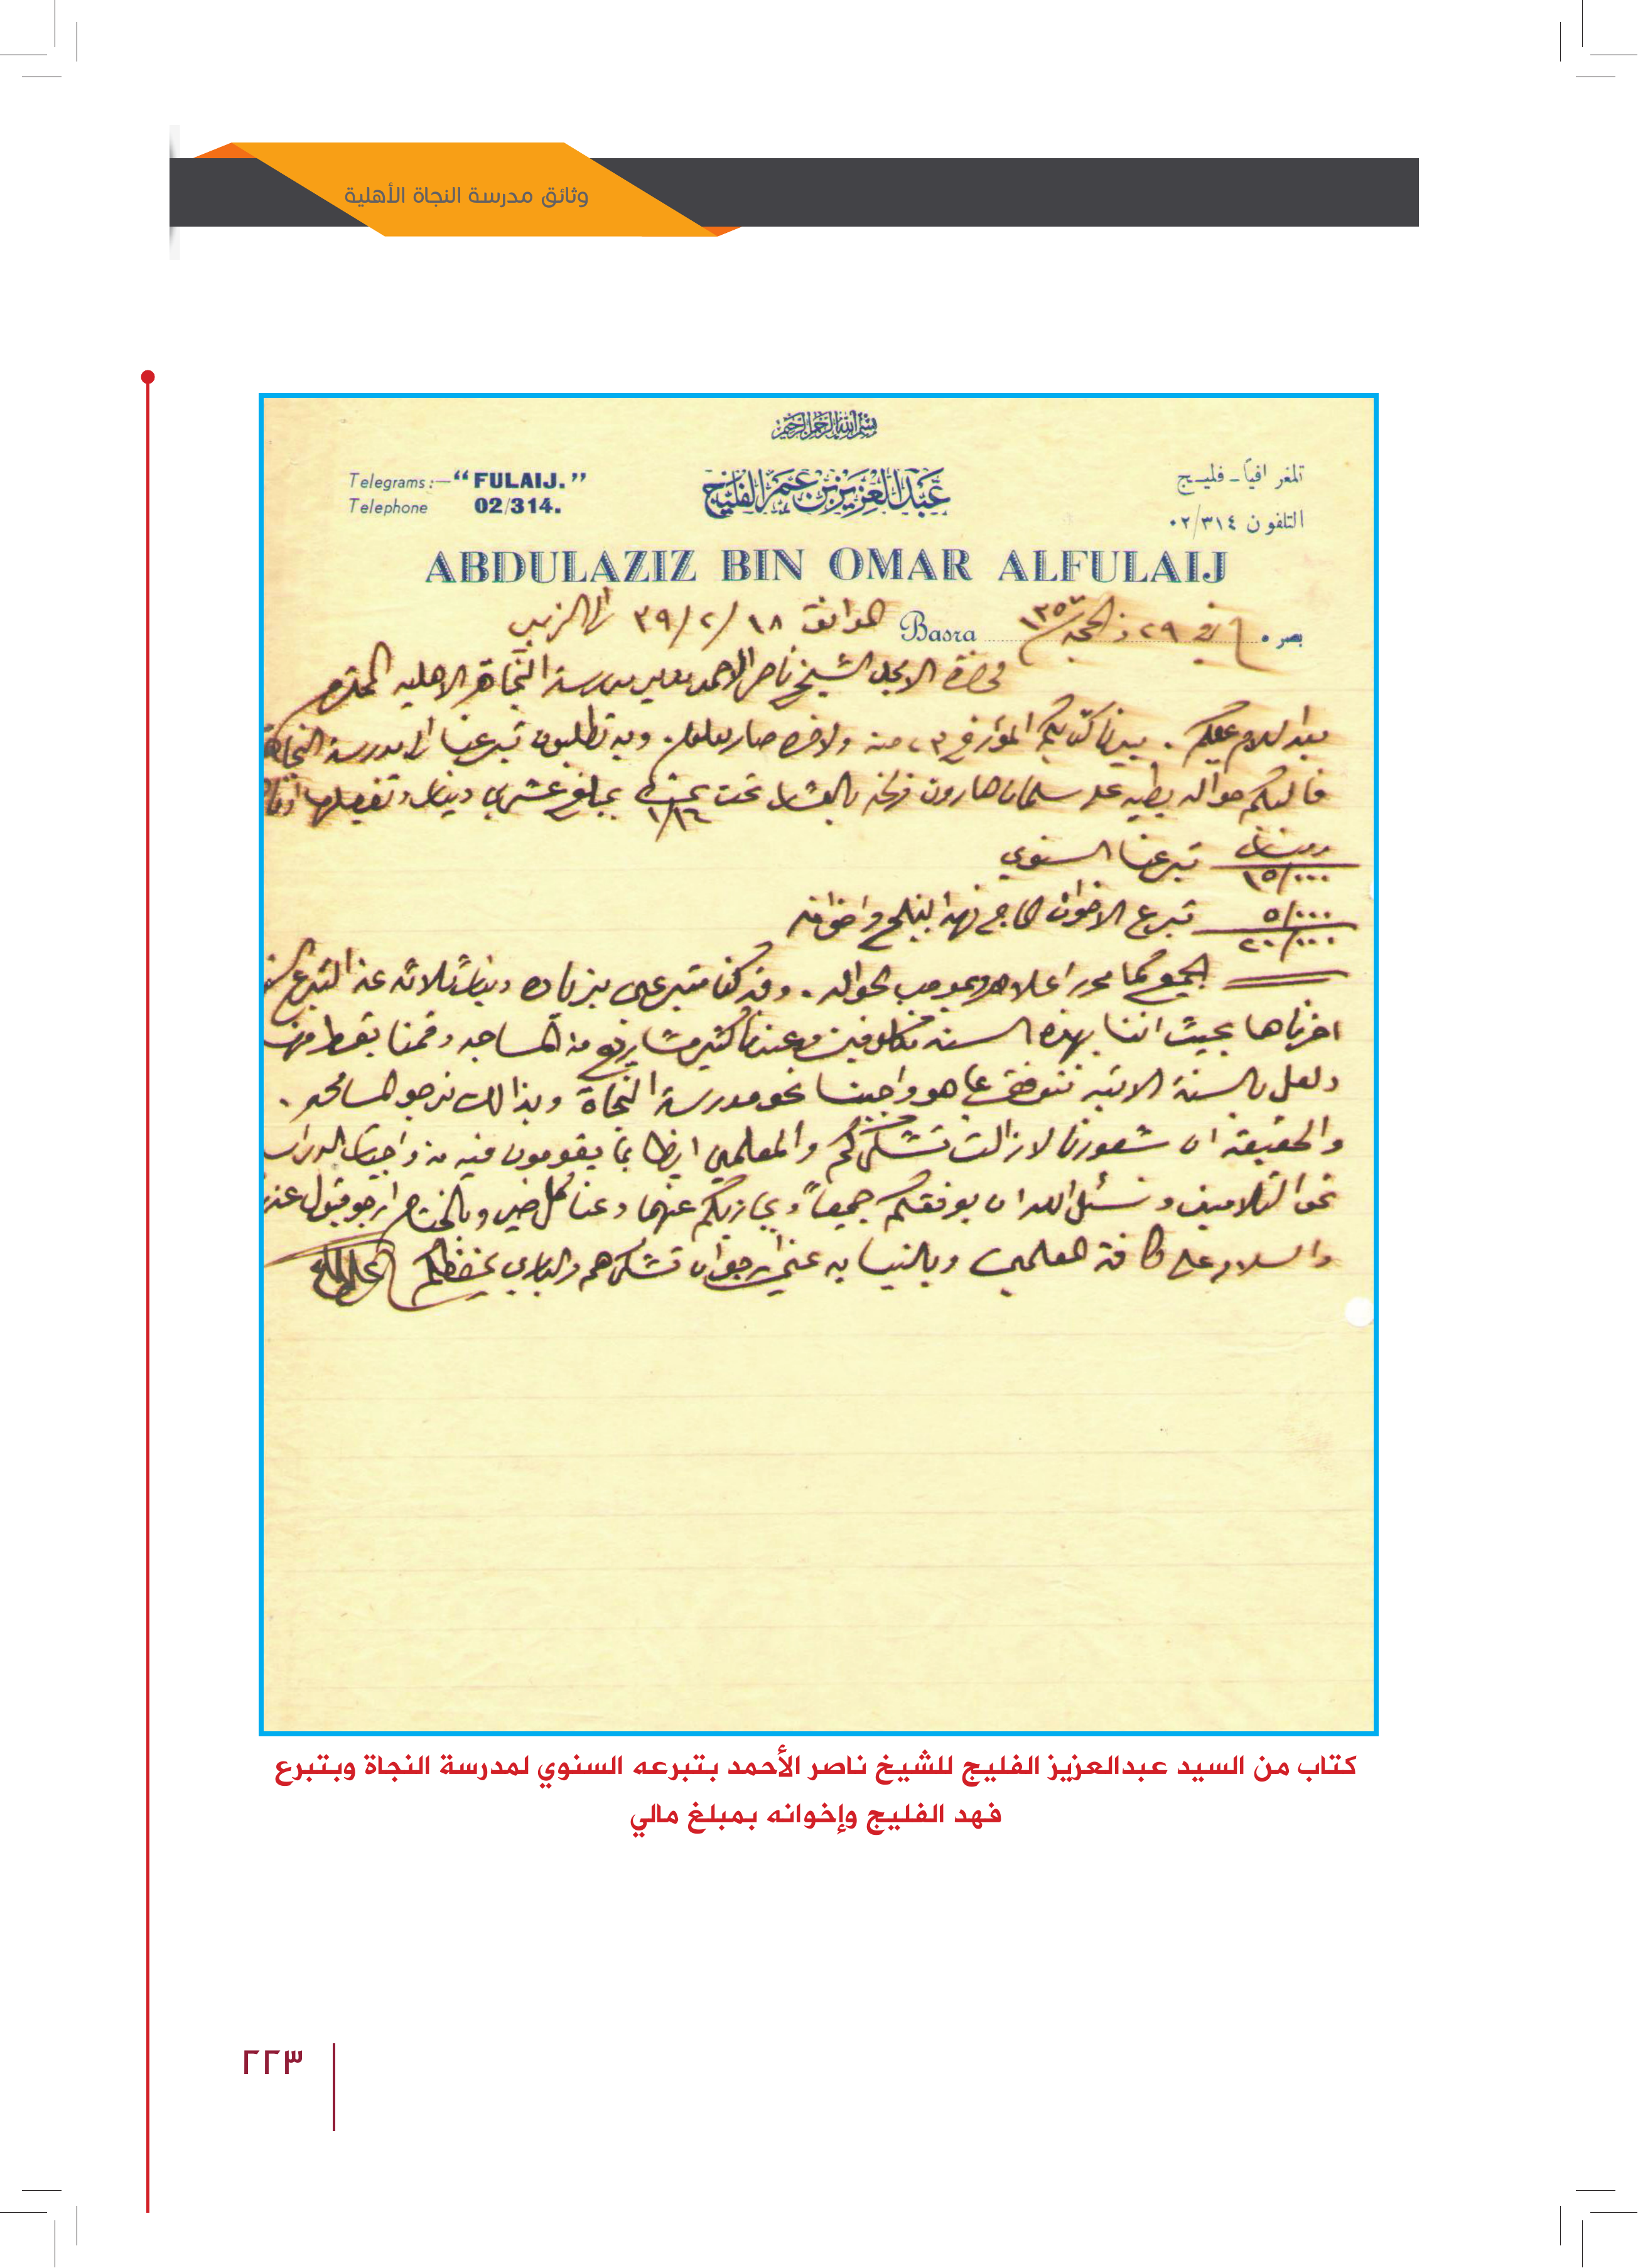 وثائق مدرسة النجاة الأهلية
بسم الله الرحمن الرحيم
Telegrams:— “FULAIJ.”
Telephone 02/314.
عبدالعزيز بن عمر الفليج
تلغرافياً - فليج
التلفون ٠٢/٣١٤
ABDULAZIZ BIN OMAR ALFULAIJ
بصره في ٢٩ ذالحجه ١٣٥٧ Basra الموافق ١٨/٢/٣٩ الى الزبير
حضرة الاجل الشيخ ناصر الاحمد مدير مدرسة النجاة الاهليه المحترم
بعد السلام عليكم. بيدنا كتابكم المؤرخ في ٢٣ منه ولاذكره صار معلوم. وبه تطلبون تبرعنا الى مدرسة النجاة
فاليكم حواله بطيه على سلمان هارون بالعشار تحت بمبلغ عشرين دينار وتفصيلها
دينار
١٥/٠٠٠ تبرعنا السنوي
٥/٠٠٠ تبرع الاخوان الحاج فهد الفليج واخوانه
٢٠/٠٠٠
الجميع كما محرر اعلاه وبموجب الحواله. وقد كنا متبرعين بزياده دينار ثلاثه عن التبرع
اخرناها بحيث اننا بهذه السنه متكلفين وعندنا كثير مشاريع من المساجد وقمنا بقسط منها
ولعل بالسنة الاتيه نتوفق بما هو واجبنا نحو مدرسة النجاة وبذالك نرجو المسامحه.
والحقيقة ان شعورنا لازالت تشكركم والمعلمين ايضا بما يقومون فيه من واجبات الدراسة
نحو التلاميذ ونسئل الله ان يوفقكم جميعاً ويجازيكم عنهما وعنا كل خير وبالختام ارجو قبول
والسلام على كافة المعلمين وبالنيابه عني ارجو ان تشكرهم والباري يحفظكم
كتاب من السيد عبدالعزيز الفليج للشيخ ناصر الأحمد بتبرعه السنوي لمدرسة النجاة وبتبرع
فهد الفليج وإخوانه بمبلغ مالي
٢٢٣